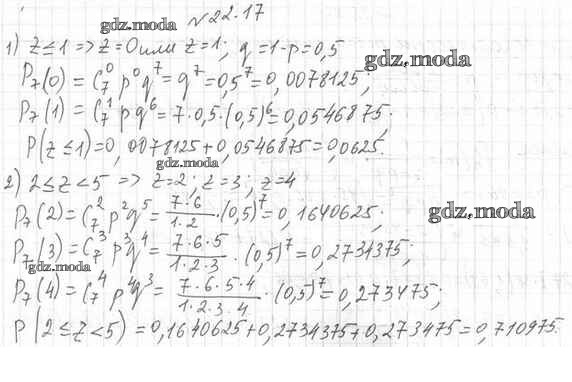 gdz.moda
№22.17
1) z≤1 => z=0 или z=1; q=1-p=0,5
gdz.moda
P₇(0) = C₇⁰ p⁰ q⁷ = q⁷ = 0,5⁷ = 0,0078125;
P₇(1) = C₇¹ p q⁶ = 7·0,5·(0,5)⁶ = 0,0546875;
P(z≤1) = 0,0078125 + 0,0546875 = 0,0625.
gdz.moda
2) 2≤z<5 => z=2; z=3; z=4
P₇(2) = C₇² p² q⁵ = (7·6)/(1·2)·(0,5)⁷ = 0,1640625;
gdz.moda
P₇(3) = C₇³ p³ q⁴ = (7·6·5)/(1·2·3)·(0,5)⁷ = 0,2734375;
gdz.moda
P₇(4) = C₇⁴ p⁴ q³ = (7·6·5·4)/(1·2·3·4)·(0,5)⁷ = 0,273475;
P(2≤z<5) = 0,1640625 + 0,2734375 + 0,273475 = 0,710975.